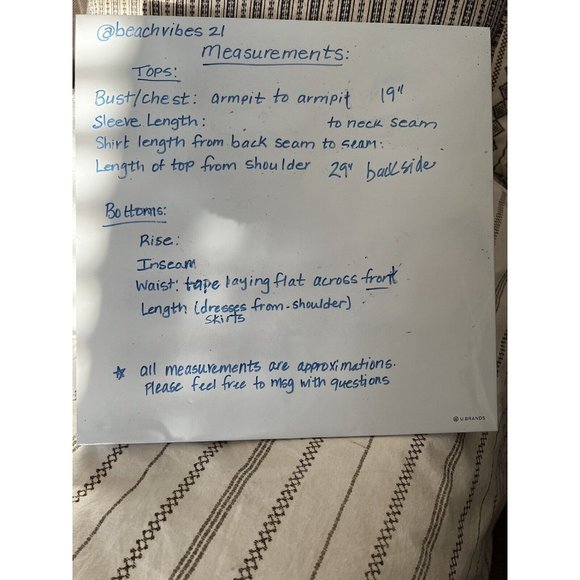 @beachvibes 21
Measurements:
Tops:
Bust/chest: armpit to armpit 19"
Sleeve Length: to neck seam
Shirt length from back seam to seam:
Length of top from shoulder 29" backside
Bottoms:
Rise:
Inseam
Waist: tape laying flat across front
Length (dresses from shoulder)
skirts
☆ all measurements are approximations.
Please feel free to msg with questions
U BRANDS